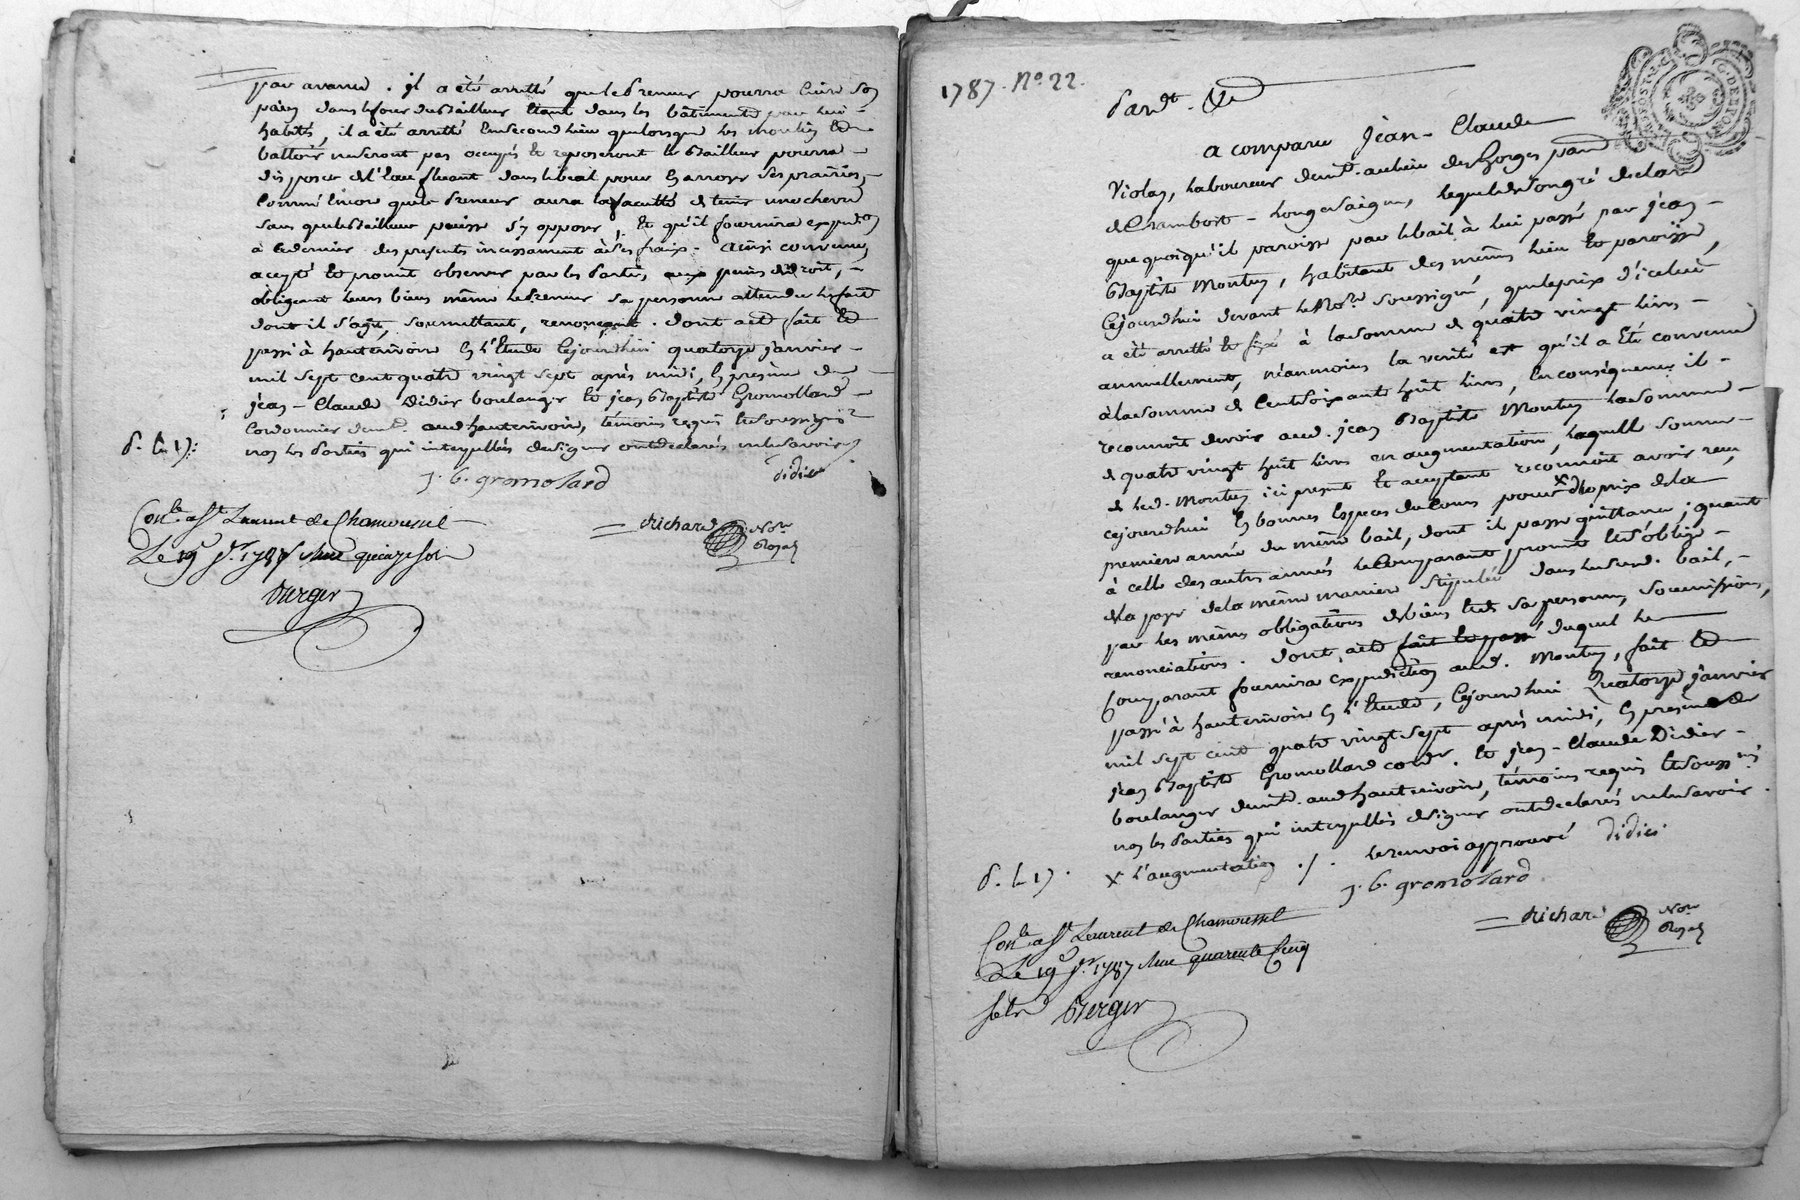 par avance . il a été arretté que le preneur pourra cuire son
pain dans le four du bailleur étant dans les bâtiments par lui
habités, il a été arretté en second lieu que lorsque les moulins et
battoir ne seront pas occupés et reposeront le bailleur pourra
disposer de l'eau fluant dans le beal pour en arroser ses prairies,
comme encor que le preneur aura la faculté de tenir une chevre
sans que le bailleur puisse s'y opposer, et qu'il fournira expedon
à ce dernier des presentes incessament à ses fraix. ainsi convenu,
accepté et promit observer par les parties, aux peines de droit,
obligeant leurs biens même le preneur sa personne attendu le fait
dont il s'agit, soumettant, renonçant. dont acte fait et
passé à hauterivoire en l'Etude cejourdhui quatorze janvier
mil sept cent quatre vingt sept après midi, en presence de
jean-Claude Didier boulanger et jean Baptiste Gromollard
Cordonnier demt aud hauterivoire, témoins requis et soussignés
non les parties qui interpellées de signer ont declarés ne le savoir
d. le 17:
j. b. gromolard
didier
Conlé a St Laurent de Chamousset
Le 19e jer 1787 Reçu quinze sols
Berger
Richard Nore
Royal
1787. No 22.
Pardt. &e
a comparu Jean-Claude
Violay, laboureur demt. au lieu des Gorges parsse
de Chambost-Longesaigne, lequel de son gré declare
que quoiqu'il paroisse par le bail à lui passé par jean
Baptiste Montuy, habitant des mêmes lieu et paroisse,
Cejourdhui devant le Nore soussigné, que le prix d'icelui
a été arretté et fixé à la somme de quatre vingt livres
annuellement, néanmoins la verité est qu'il a été convenu
à la somme de Cent soixante huit livres, En conséquence il
reconnoit devoir aud. jean Baptiste Montuy la somme
de quatre vingt huit livres en augmentation, laquelle somme
de led. Montuy ici present et acceptant reconnoit avoir reçu
cejourdhui en bonnes Especes de cours pour x du prix de la
premiere année du même bail, dont il passe quittance; quant
à celle des autres années le Comparant promet et s'oblige
de la payer de la même maniere stipulée dans le susd. bail,
par les mêmes obligations de biens et de sa personne, soumissions,
renonciations. dont acte fait et passé duquel le
Comparant fournira Expedition aud. Montuy, fait et
passé à hauterivoire en l'Etude, Cejourdhui Quatorze janvier
mil sept cent quatre vingt sept après midi, en presence de
jean Baptiste Gromollard cordr. et jean-Claude Didier
boulanger demt. aud hauterivoire, témoins requis et soussignés
non les parties qui interpellées de signer ont declarés ne le savoir.
x l'augmentation ./. le renvoi approuvé didier
d. le 17.
j. b. gromolard
Conlé a St Laurent de Chamousset
Le 19e jer 1787 Reçu quarente Cinq
sols Berger
Richard Nore
Royal